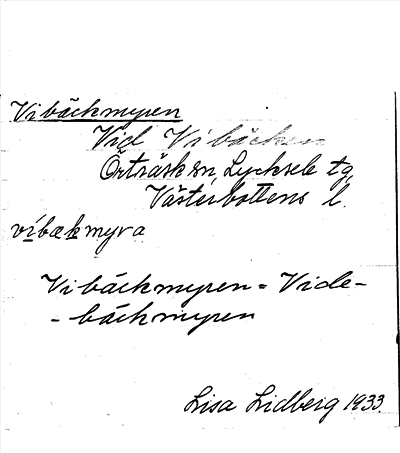 Vibäckmyren
Vid Vibäcken
Örträsk sn, Lycksele tg,
Västerbottens l.
vibækmyra
Vibäckmyren = Vide-
- bäckmyren
Lisa Lidberg 1933.